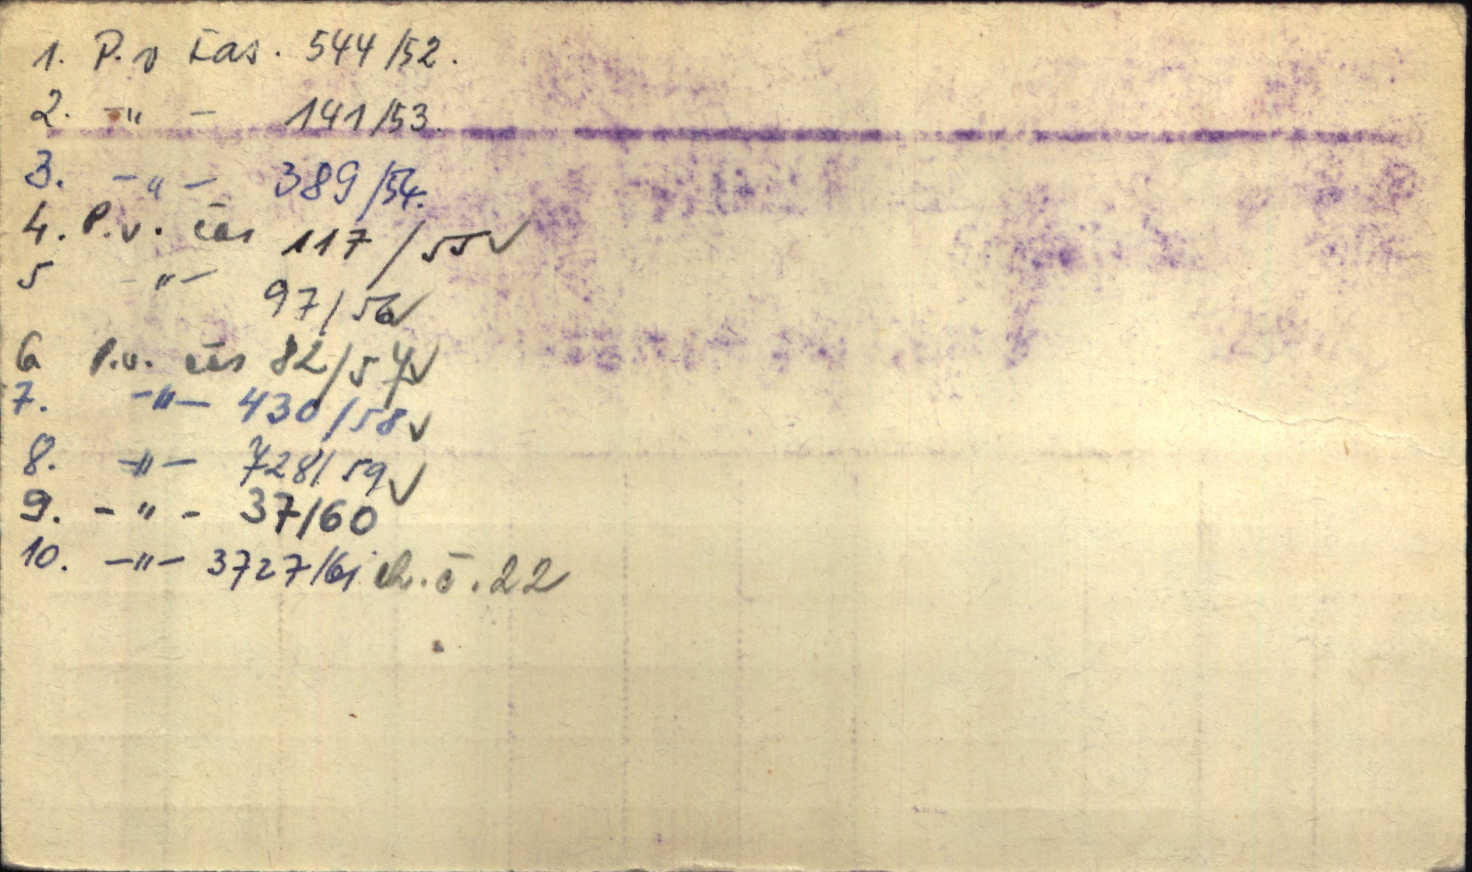 1. P. v čas. 544/52.
2. -"- 141/53.
3. -"- 389/54.
4. P.v. čas 117/55 ✓
5 -"- 97/56 ✓
6 P.v. čas 82/57 ✓
7. -"- 430/58 ✓
8. -"- 728/59 ✓
9. -"- 37/60
10. -"- 3727/61 ch. č. 22